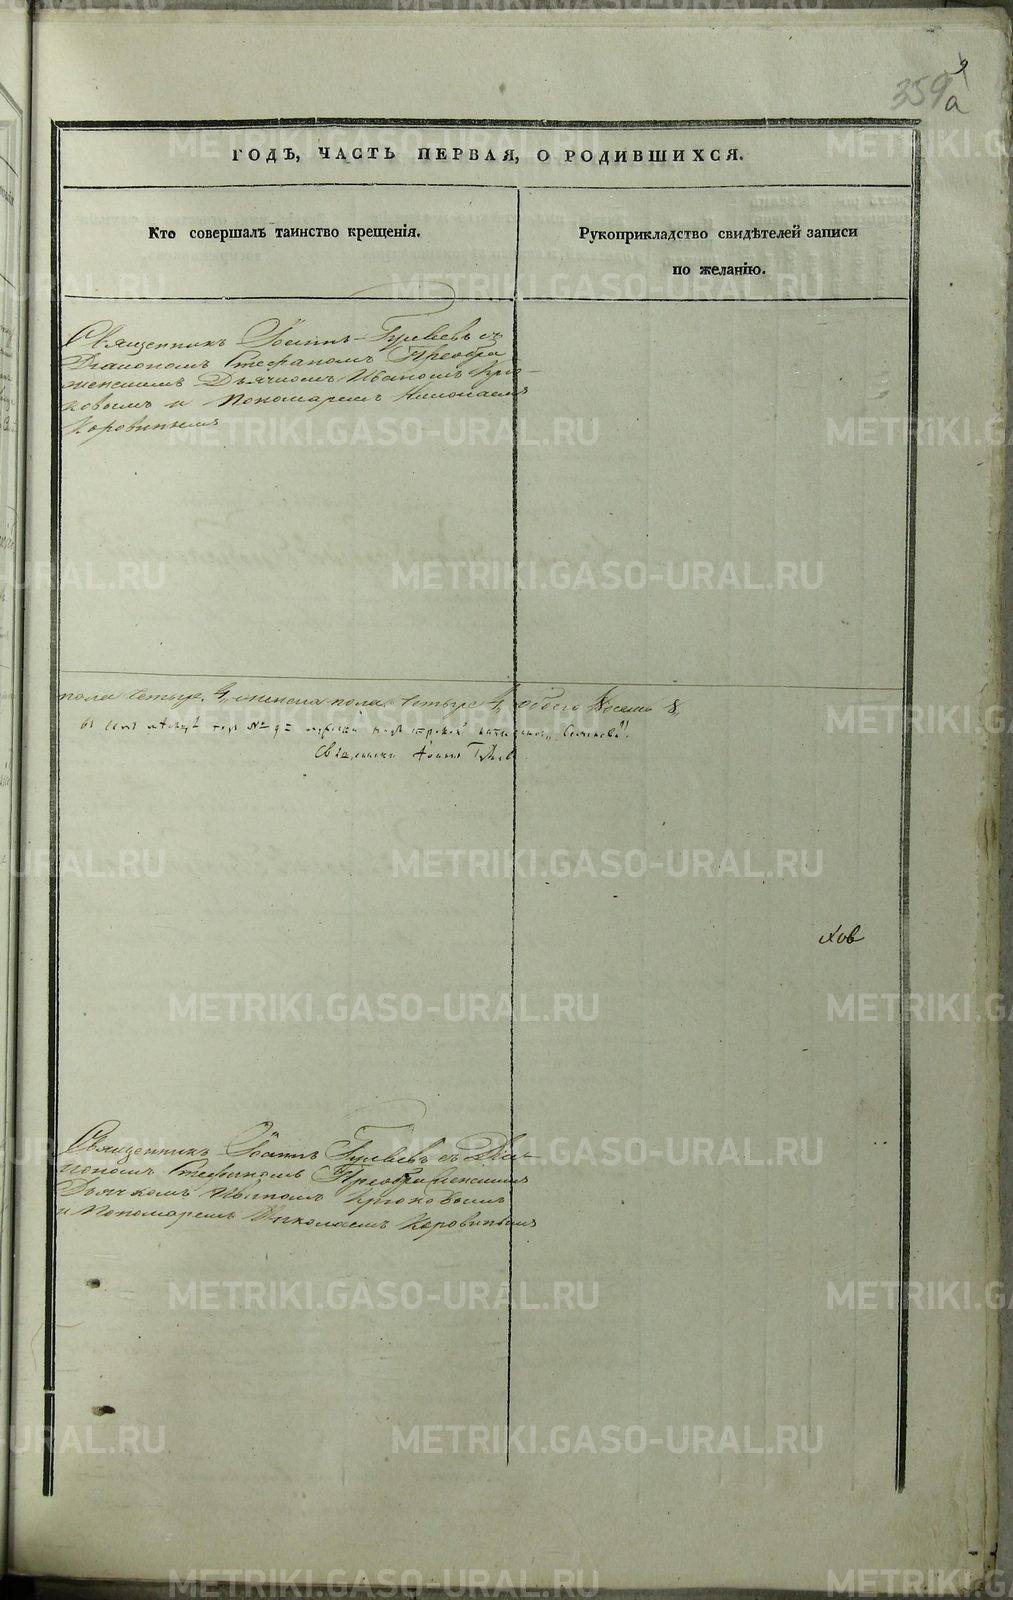 359
9
а
ГОДЪ, ЧАСТЬ ПЕРВАЯ, О РОДИВШИХСЯ.
Кто совершалъ таинство крещенія.
Рукоприкладство свидѣтелей записи
по желанію.
Священникъ Іоаннъ Гуляевъ съ
Діакономъ Стефаномъ Преобра
женскимъ Дьячкомъ Иваномъ Крю-
ковымъ и Пономаремъ Николаемъ
Коровинымъ
пола четыре 4, женска пола четыре 4, обоего восемь 8,
въ семъ
Священникъ Іоаннъ Гуляевъ
ховъ
Священникъ Іоаннъ Гуляевъ съ Діа-
кономъ Стефаномъ Преображенскимъ
Дьячкомъ Иваномъ Крюковымъ
и Пономаремъ Николаемъ Коровинымъ
METRIKI.GASO-URAL.RU